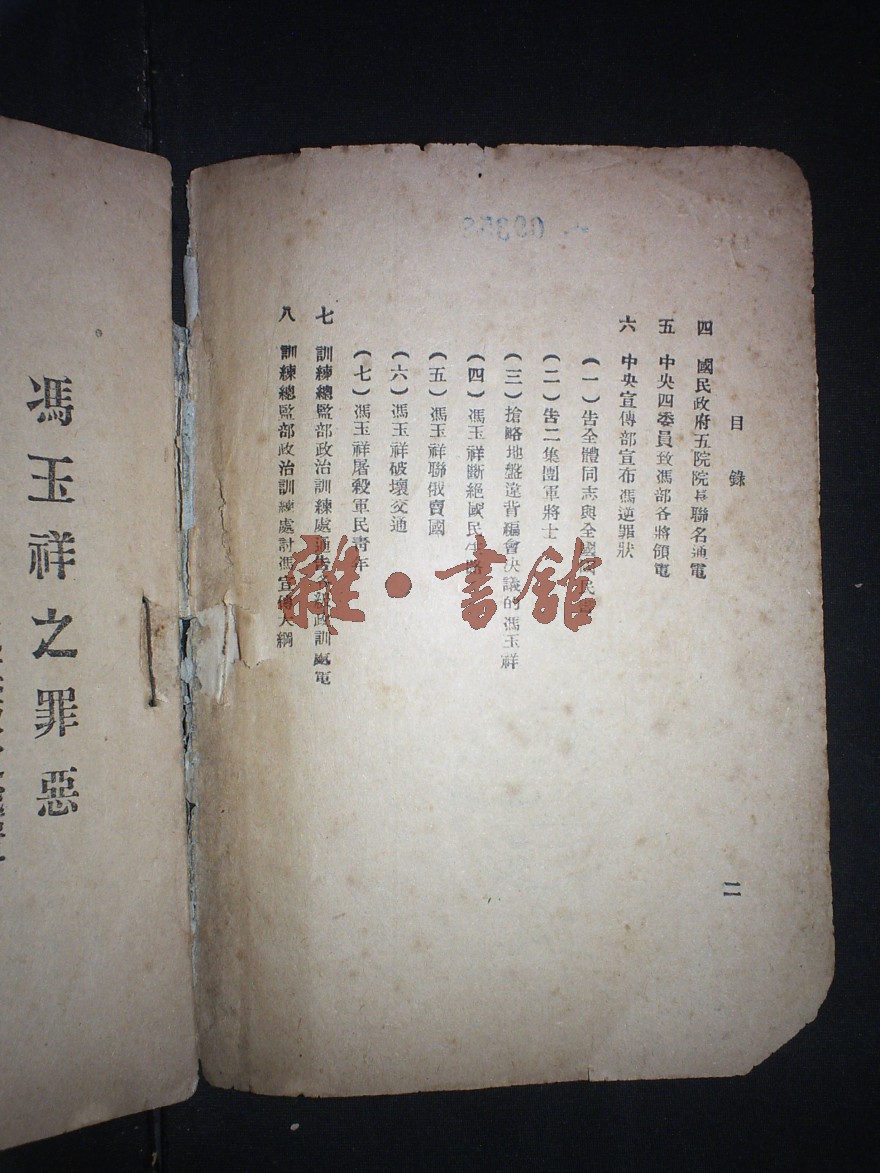 目錄
四 國民政府五院院長聯名通電
五 中央四委員致馮部各將領電
六 中央宣傳部宣布馮逆罪狀
(一)告全體同志與全國國民
(二)告二集團軍將士
(三)搶略地盤違背編會決議的馮玉祥
(四)馮玉祥斷絕國民生路
(五)馮玉祥聯俄賣國
(六)馮玉祥破壞交通
(七)馮玉祥屠殺軍民靑年
七 訓練總監部政治訓練處通告各級政訓處電
八 訓練總監部政治訓練處討馮宣傳大綱
二
馮玉祥之罪惡
雜·書館